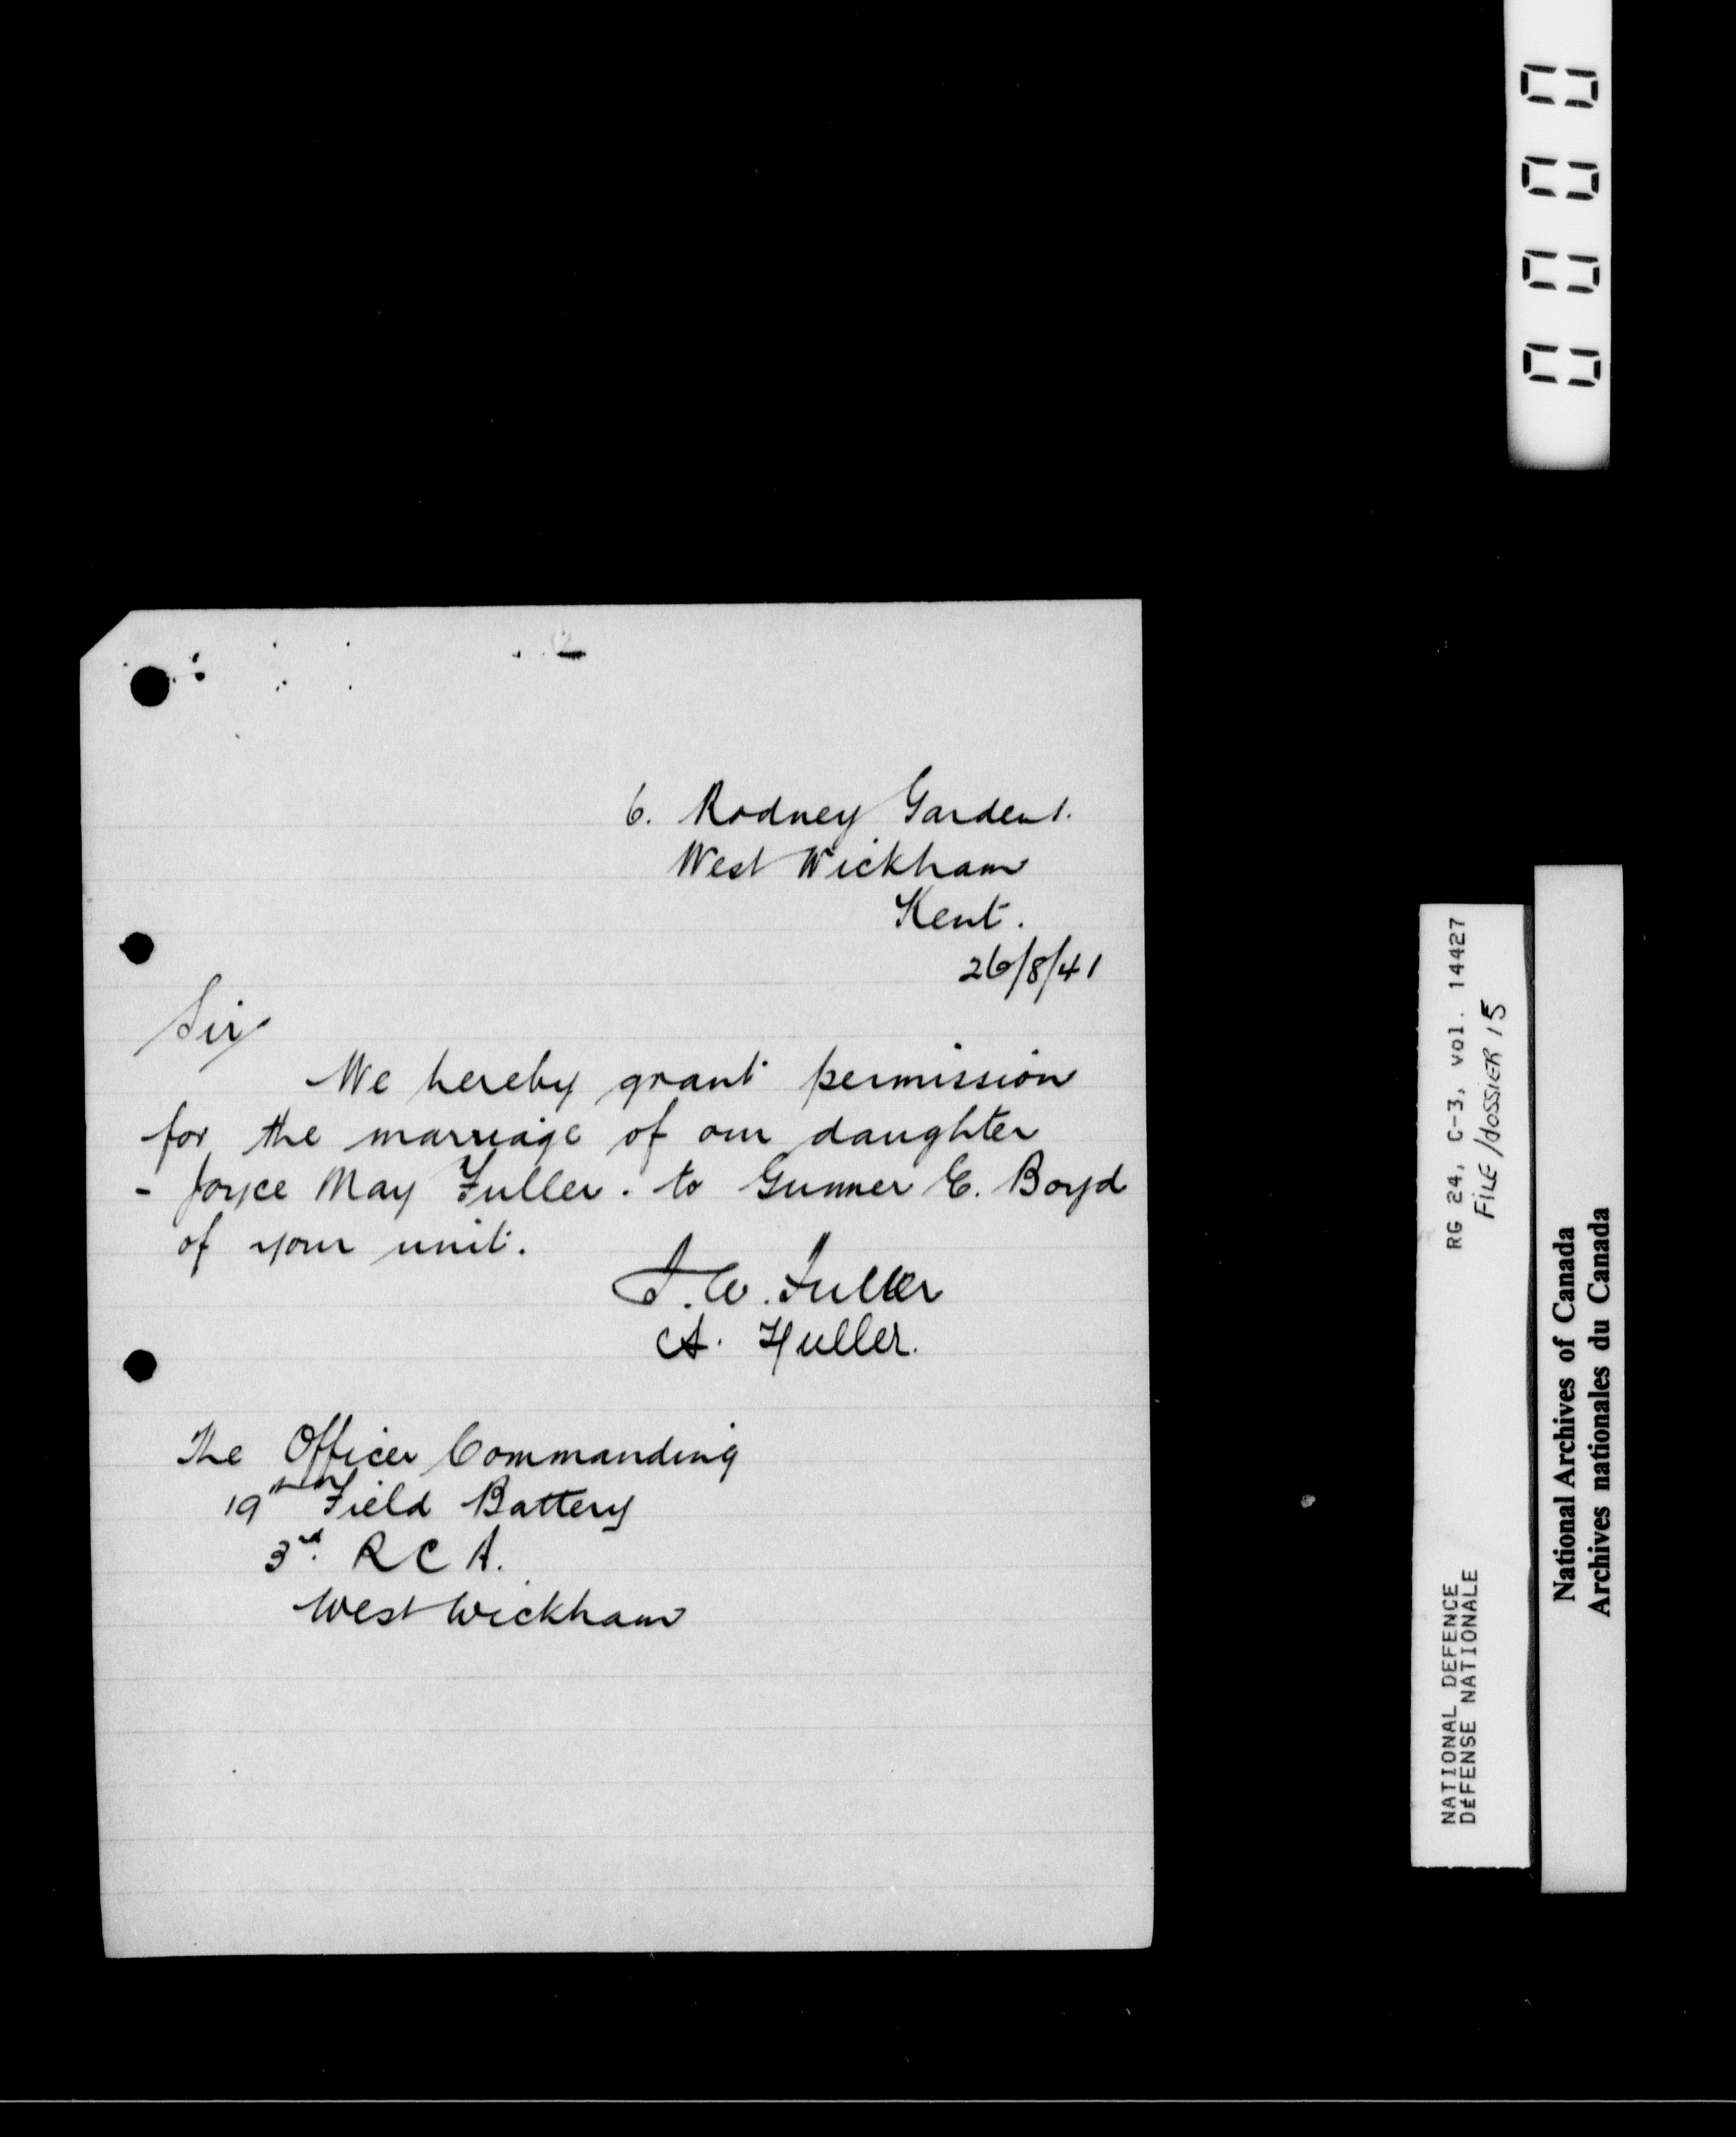 6. Rodney Gardens.
West Wickham
Kent.
26/8/41
Sir
We hereby grant permission
for the marriage of our daughter
- Joyce May Fuller. to Gunner E. Boyd
of your unit.
F. W. Fuller
A. Fuller.
The Officer Commanding
19th Field Battery
3rd. R C A.
West Wickham
0000
RG 24, C-3, vol. 14427
FILE/dossier 15
NATIONAL DEFENCE
DÉFENSE NATIONALE
National Archives of Canada
Archives nationales du Canada